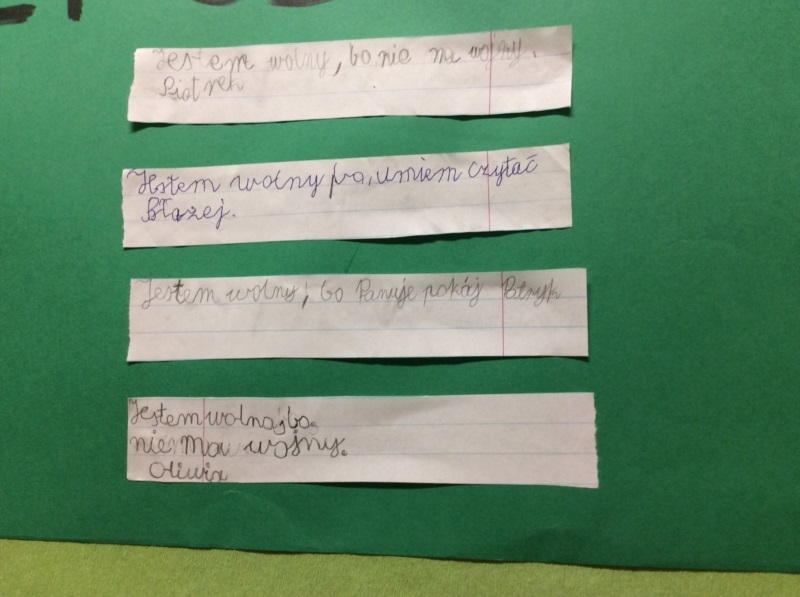 Jestem wolny, bo nie ma wojny.
Piotrek
Jestem wolny bo, umiem czytać
Błażej.
Jestem wolny, bo Panuje pokój Patryk
Jestem wolna, bo
nie ma wojny.
Oliwia